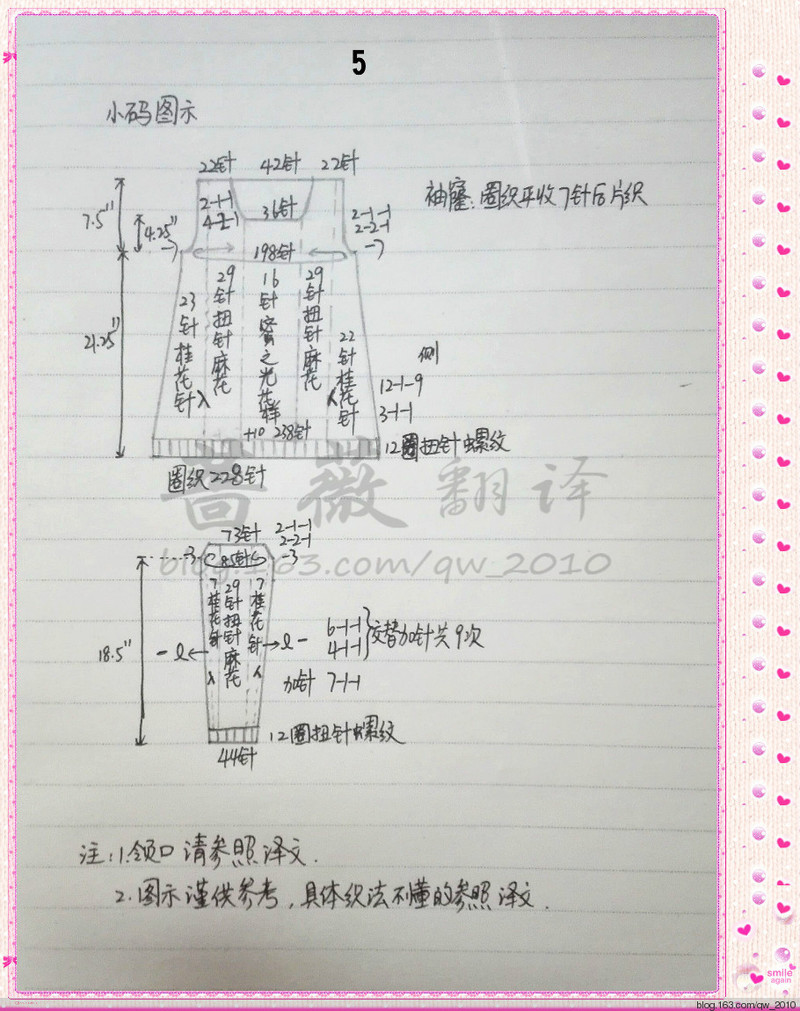 5
小码图示
22针 42针 22针
2-1-1
4-2-1
36针
2-1-1
2-2-1
-7
7.5"
4.25"
-7
198针
袖窿：圈织平收7针后片织
21.25"
23针桂花针
29针扭针麻花
16针蜜之光花样
29针扭针麻花
22针桂花针
侧
12-1-9
3-1-1
+10 238针
12圈扭针螺纹
圈织228针
蔷薇翻译
blog.163.com/qw_2010
73针
2-1-1
2-2-1
-3
-3
85针
18.5"
7桂花针
29针扭针麻花
7桂花针
-l
l-
6-1-1
4-1-1
交替加针共9次
加针 7-1-1
12圈扭针螺纹
44针
注：1.领口请参照译文.
2.图示谨供参考，具体织法不懂的参照译文.
smile
again
blog.163.com/qw_2010